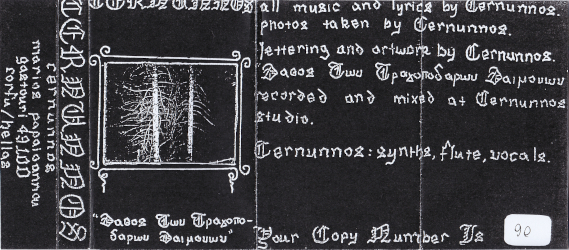 cernunnos
marios papaioannou
gastouri 49100
corfu/hellas
CERNUNNOS
CERNUNNOS
"Δαθος Των Τραχοπο-
δαρων Δαιμονων"
all music and lyrics by Cernunnos.
photos taken by Cernunnos.
lettering and artwork by Cernunnos.
Δαθος Των Τραχοποδαρων Δαιμονων
recorded and mixed at Cernunnos
studio.
Cernunnos: synths, flute, vocals.
Your Copy Number Is 90